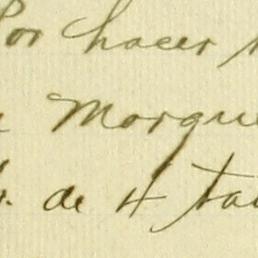 Por hacer
Morque
de 4 tal